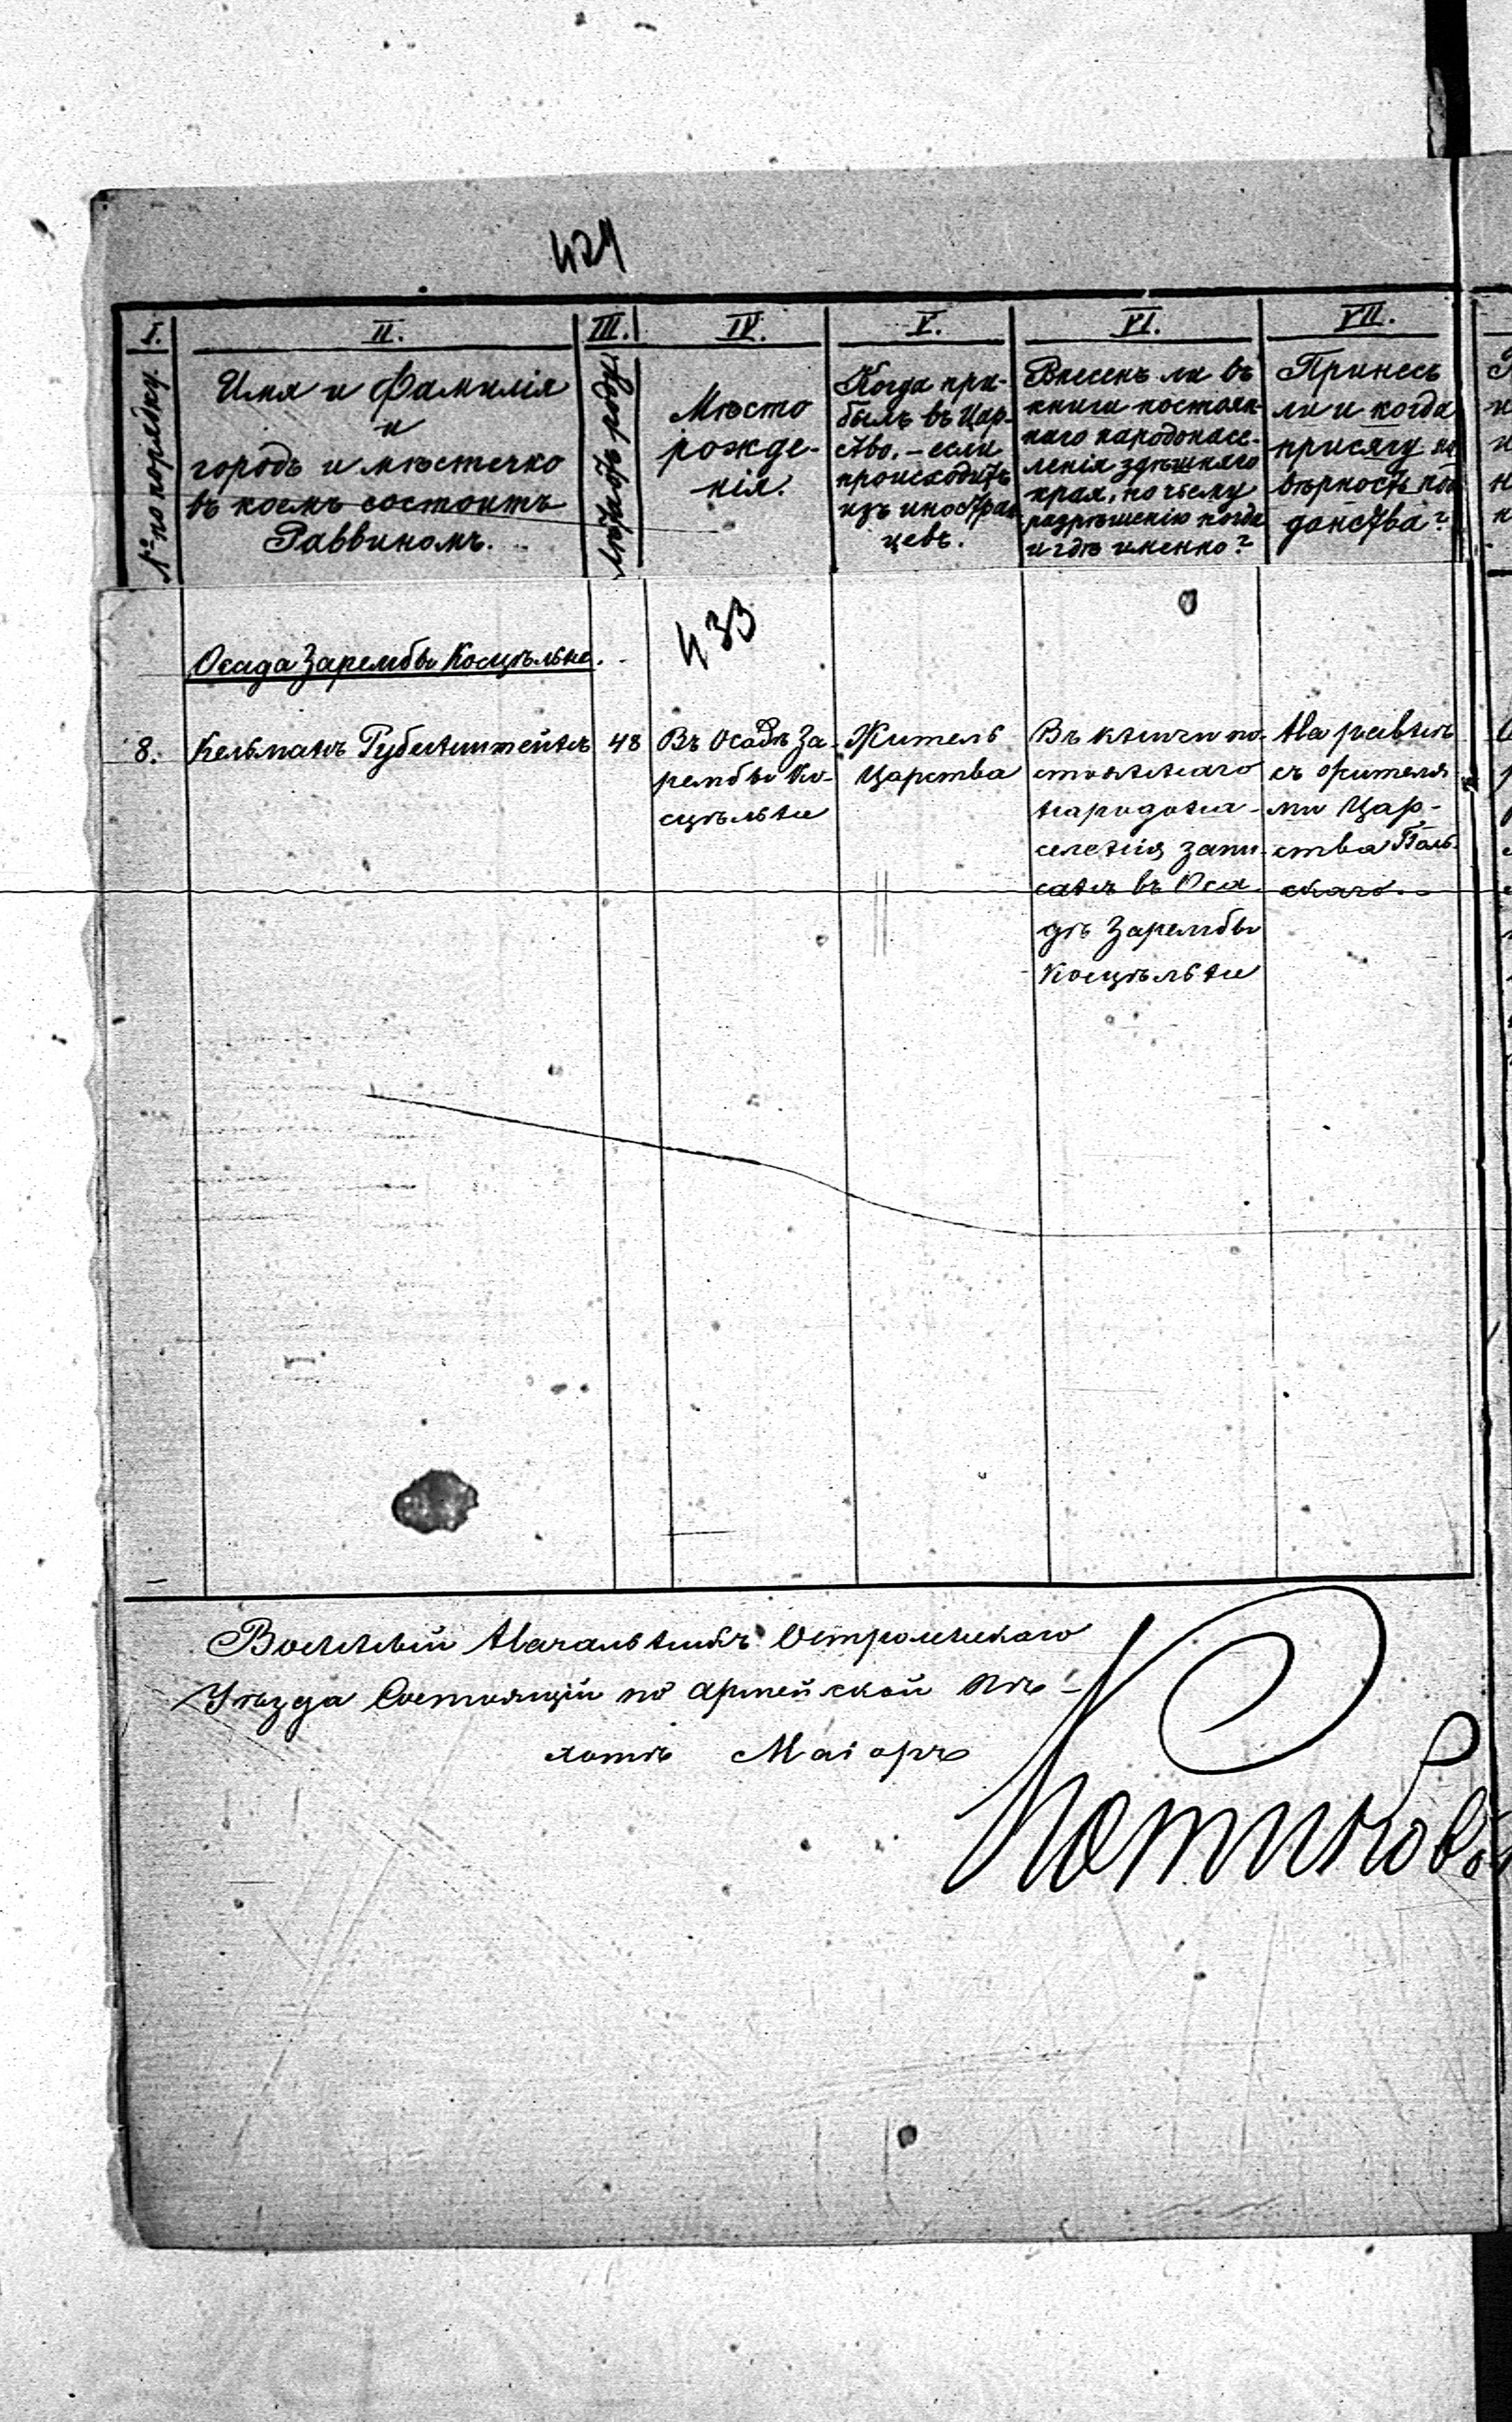 421
I.
II.
III.
IV.
V.
VI.
VII.
№ по порядку.
Имя и Фамилія
и
городъ и мѣстечко
въ коемъ состоитъ
Раввиномъ.
Лѣтъ отъ роду
Мѣсто
рожде-
нія.
Когда при-
былъ въ Цар-
ство, – если
происходитъ
изъ иностран
цевъ.
Внесенъ ли въ
книги постоян-
наго народонасе-
ленія здѣшняго
края, по чьему
разрѣшенію когда
и гдѣ именно?
Принесъ
ли и когда
присягу на
вѣрность под
данства?
433
Осада Зарембы Косцѣльне.
8.
Кельманъ Рубинштейнъ
48
Въ Осадѣ За-
рембы Ко-
сцѣльне
Житель
Царства
Въ книги по-
стояннаго
народона-
селенія запи
санъ въ Оса-
дѣ Зарембы
Косцѣльне
Наравнѣ
съ жителя
ми Цар-
ства Поль-
скаго.
Военный Начальникъ Остроленскаго
Уѣзда Состоящій по Армейской Пѣ-
хотѣ Маіоръ
Котиковъ